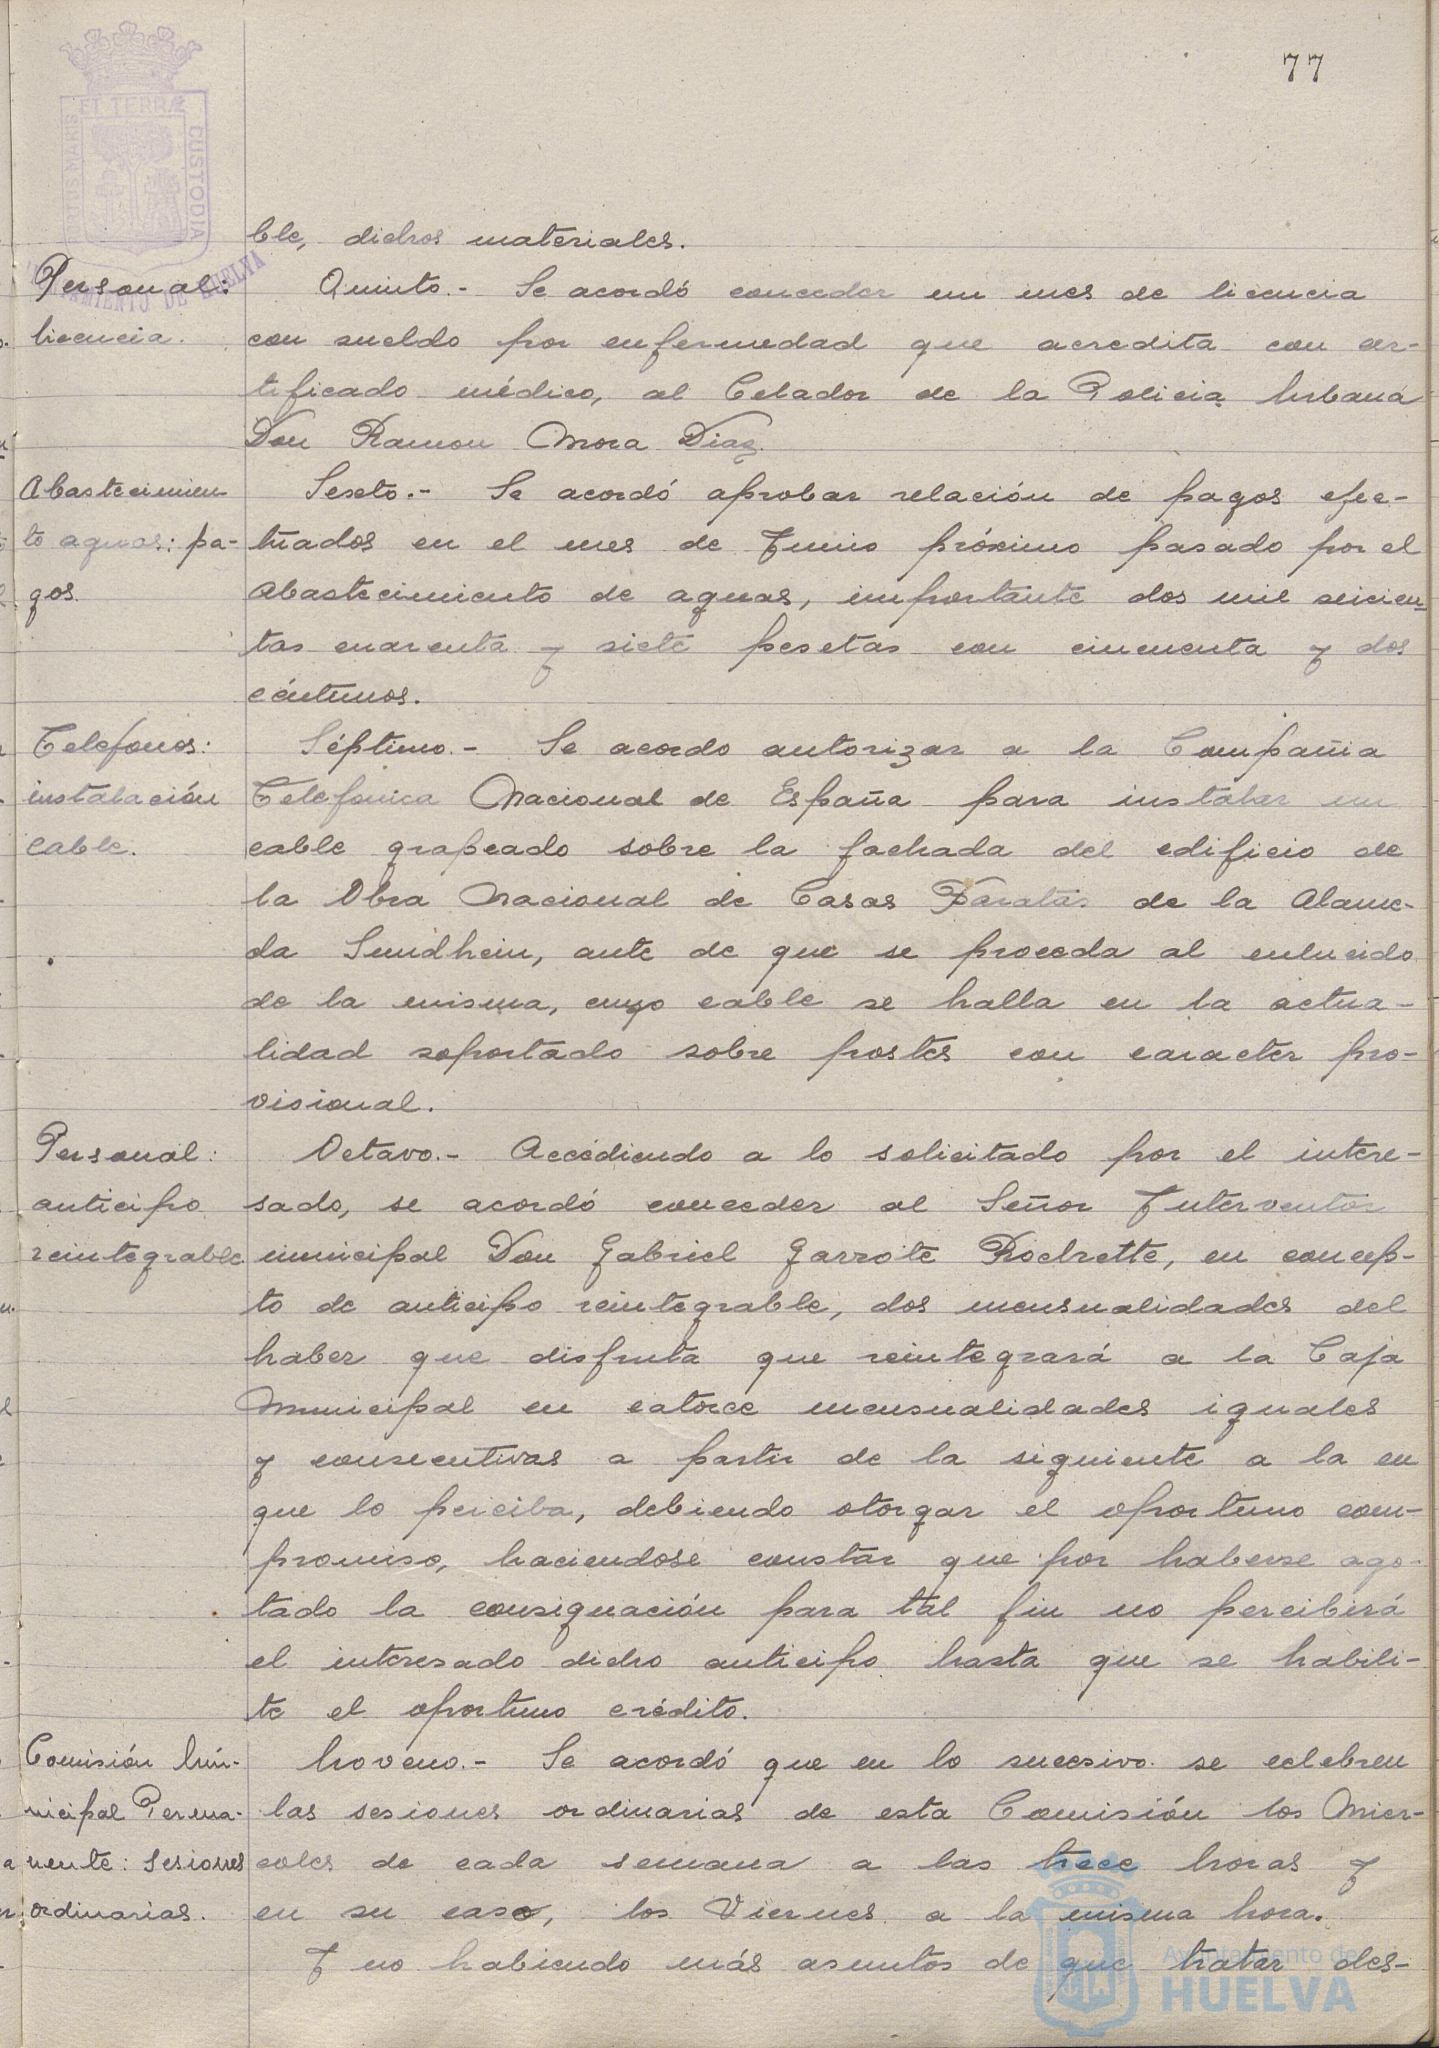 77
PORTUS MARIS ET TERRÆ CUSTODIA
AYUNTAMIENTO DE HUELVA
ble, dichos materiales.
Personal:
licencia.
Quinto.- Se acordó conceder un mes de licencia
con sueldo por enfermedad que acredita con cer-
tificado médico, al Celador de la Policia Urbana
Don Ramon Mora Diaz.
Abastecimien-
to aguas: pa-
gos.
Sexto.- Se acordó aprobar relación de pagos efec-
tuados en el mes de Junio próximo pasado por el
Abastecimiento de aguas, importante dos mil seiscien-
tas cuarenta y siete pesetas con cincuenta y dos
céntimos.
Telefonos:
instalación
cable.
Séptimo.- Se acordo autorizar a la Compañia
Telefonica Nacional de España para instalar un
cable grapeado sobre la fachada del edificio de
la Obra Nacional de Casas Baratas de la Alame-
da Sundhein, ante de que se proceda al enlucido
de la misma, cuyo cable se halla en la actua-
lidad soportado sobre postes con caracter pro-
visional.
Personal:
anticipo
reintegrable
Octavo.- Accediendo a lo solicitado por el intere-
sado, se acordó conceder al Señor Interventor
municipal Don Gabriel Garrote Rochette, en concep-
to de anticipo reintegrable, dos mensualidades del
haber que disfruta que reintegrará a la Caja
Municipal en catorce mensualidades iguales
y consecutivas a partir de la siguiente a la en
que lo perciba, debiendo otorgar el oportuno com-
promiso, haciendose constar que por haberse ago-
tado la consignación para tal fin no percibirá
el interesado dicho anticipo hasta que se habili-
te el oportuno crédito.
Comisión Mu-
nicipal Perma-
nente: Sesiones
ordinarias.
Noveno.- Se acordó que en lo sucesivo se celebren
las sesiones ordinarias de esta Comisión los Mier-
coles de cada semana a las trece horas y
en su caso, los Viernes a la misma hora.
Y no habiendo más asuntos de que tratar des-
Ayuntamiento de
HUELVA